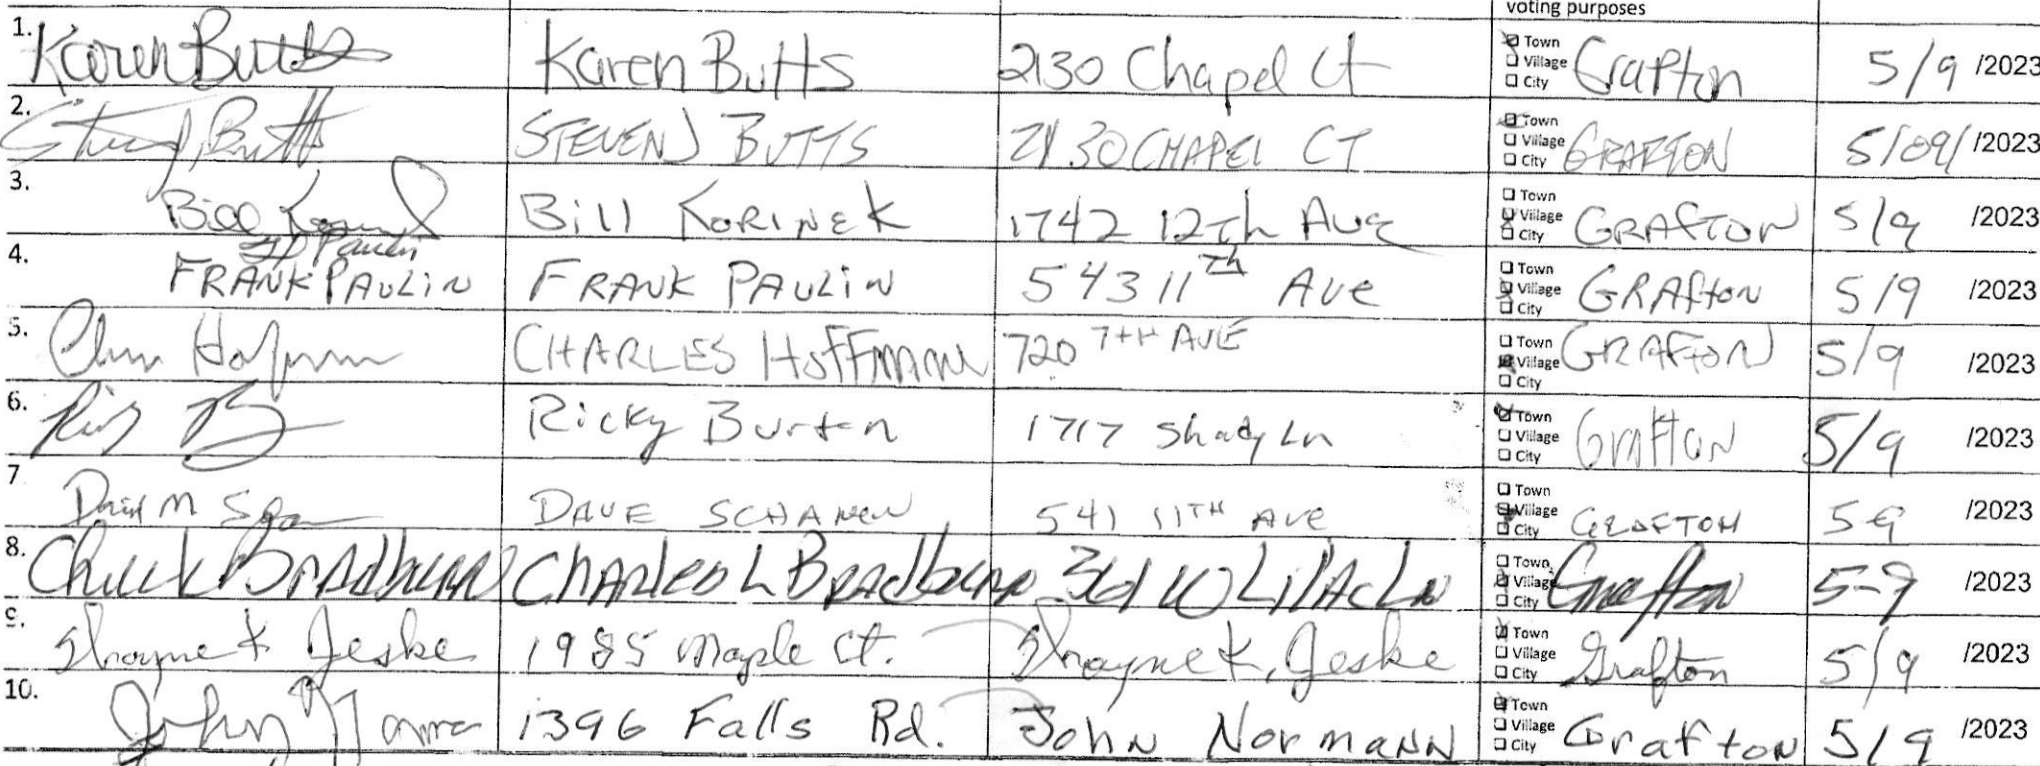 voting purposes
1. Karen Butts Karen Butts 2130 Chapel Ct Town Village City Grafton 5/9 /2023
2. Steven J Butts STEVEN J BUTTS 2130 CHAPEL CT Town Village City GRAFTON 5/09/ /2023
3. Bill Korinek Bill KORINEK 1742 12th Ave Town Village City GRAFTON 5/9 /2023
4. Paulin FRANK PAULIN FRANK PAULIN 543 11th Ave Town Village City GRAFTON 5/9 /2023
5. CHARLES HOFFMANN 720 7TH AVE Town Village City GRAFTON 5/9 /2023
6. Ricky Burton 1717 Shady Ln Town Village City Grafton 5/9 /2023
7 David M DAVE SCHANEN 541 11TH AVE Town Village City GRAFTON 5-9 /2023
8. Chuck Bradburn Charles L Bradburn 361 W LilAc Ln Town Village City Grafton 5-9 /2023
9. Shayne K Jeske 1985 Maple Ct. Shayne K. Jeske Town Village City Grafton 5/9 /2023
10. John Normann 1396 Falls Rd. John Normann Town Village City Grafton 5/9 /2023